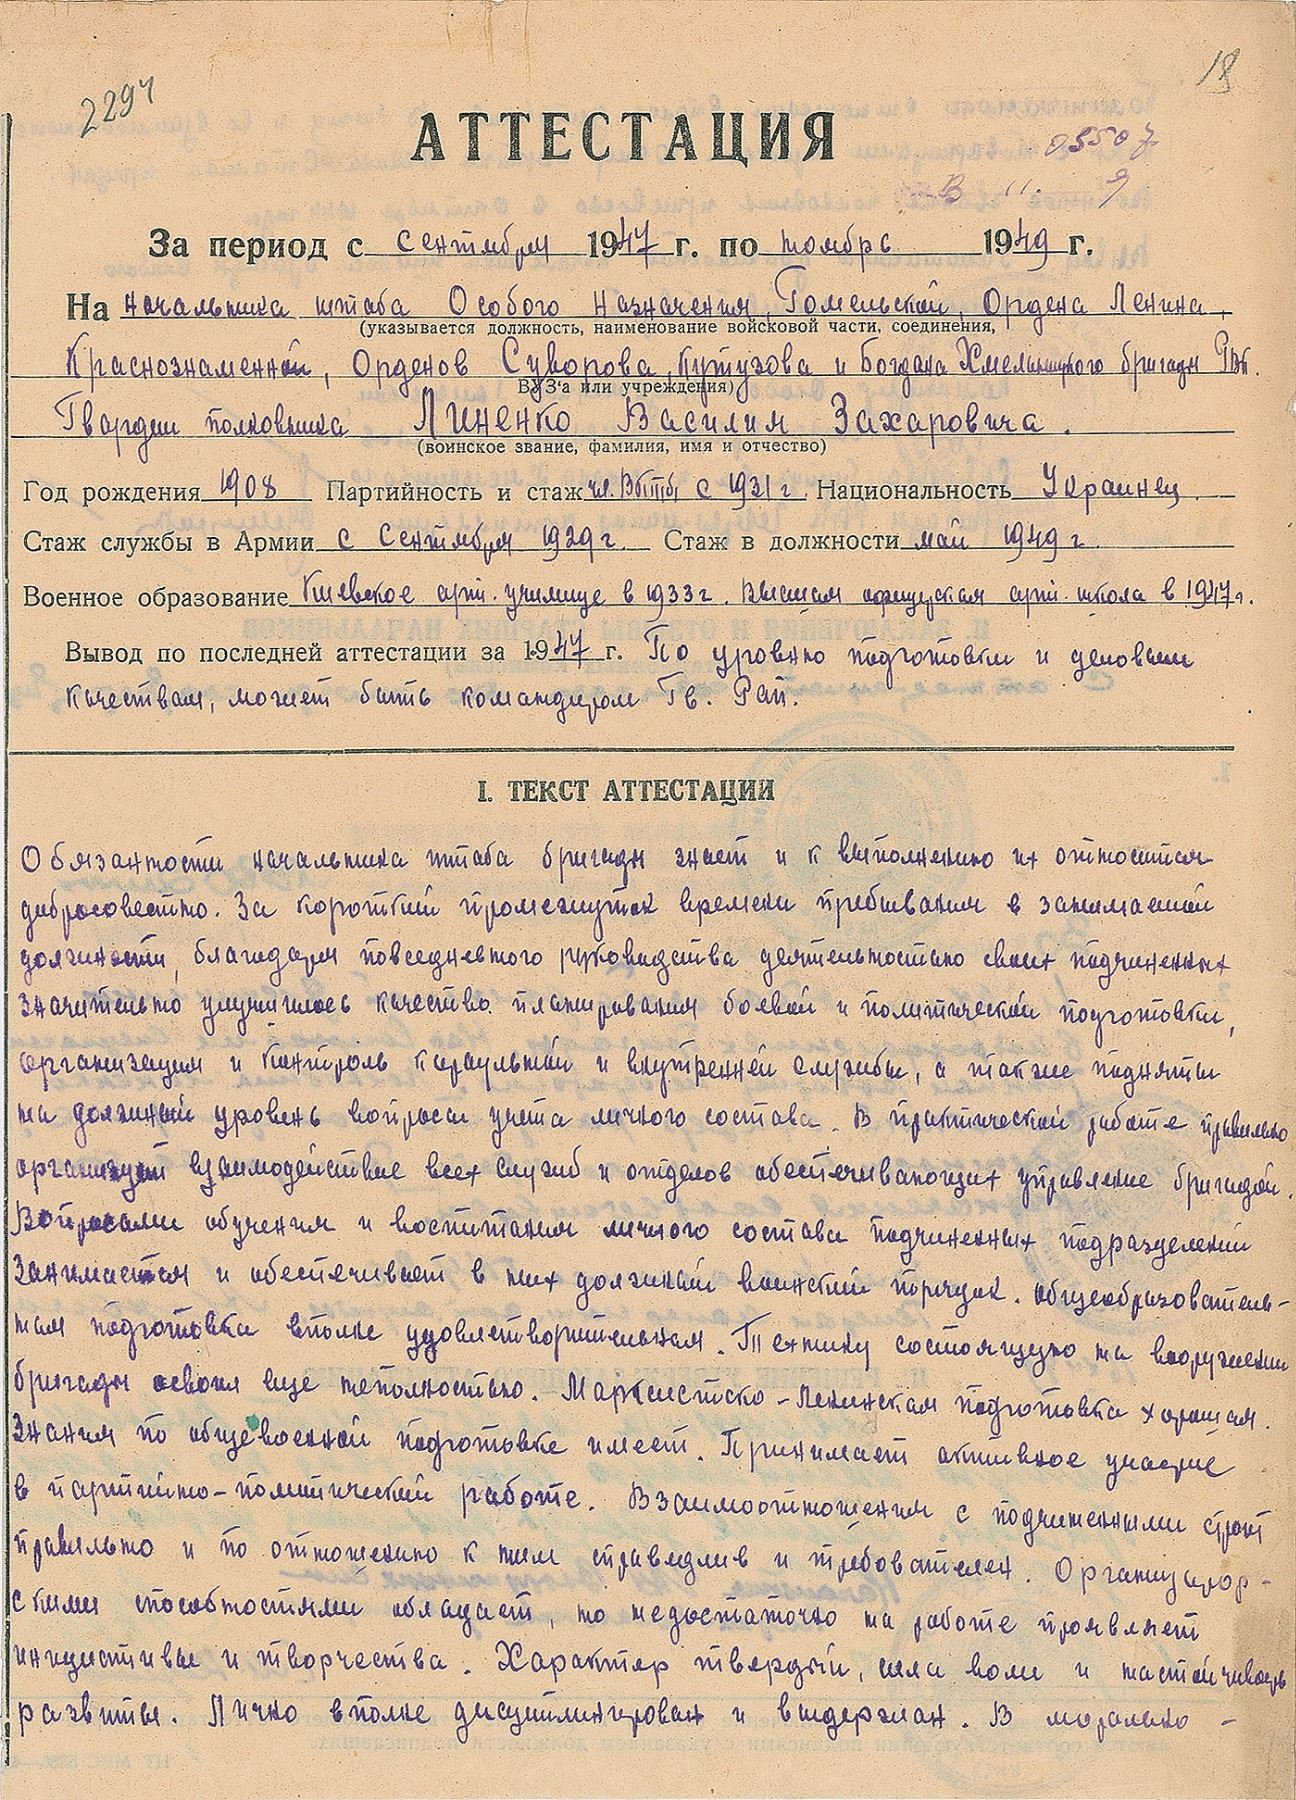 2294
18
АТТЕСТАЦИЯ
05507
За период с сентября 1947 г. по ноябрь 1949 г.
На начальника штаба Особого Назначения, Гомельской, Ордена Ленина,
(указывается должность, наименование войсковой части, соединения,
Краснознаменной, Орденов Суворова, Кутузова и Богдана Хмельницкого бригады РВГК.
ВУЗ'а или учреждения)
Гвардии полковника Линенко Василия Захаровича.
(воинское звание, фамилия, имя и отчество)
Год рождения 1908 Партийность и стаж чл. ВКП(б) с 1931 г. Национальность Украинец
Стаж службы в Армии с Сентября 1929 г. Стаж в должности май 1949 г.
Военное образование Киевское арт. училище в 1933 г. Высшая офицерская арт. школа в 1947 г.
Вывод по последней аттестации за 1947 г. По уровню подготовки и деловым
качествам, может быть командиром Гв. Рап.
I. ТЕКСТ АТТЕСТАЦИИ
Обязанности начальника штаба бригады знает и к выполнению их относится
добросовестно. За короткий промежуток времени пребывания в занимаемой
должности, благодаря повседневного руководства деятельностью своих подчиненных
значительно улучшилось качество планирования боевой и политической подготовки,
организация и контроль караульной и внутренней службы, а также подняты
на должный уровень вопросы учета личного состава. В практической работе правильно
организует взаимодействие всех служб и отделов обеспечивающих управление бригадой.
Вопросами обучения и воспитания личного состава подчиненных подразделений
занимается и обеспечивает в них должный воинский порядок. Общеобразователь-
ная подготовка вполне удовлетворительная. Технику состоящую на вооружении
бригады освоил еще неполностью. Марксистско-Ленинская подготовка хорошая.
Знания по общевоенной подготовке имеет. Принимает активное участие
в партийно-политической работе. Взаимоотношения с подчиненными строит
правильно и по отношению к ним справедлив и требователен. Организатор-
скими способностями обладает, но недостаточно на работе проявляет
инициативы и творчества. Характер твердый, сила воли и настойчивость
развиты. Лично вполне дисциплинирован и выдержан. В морально-